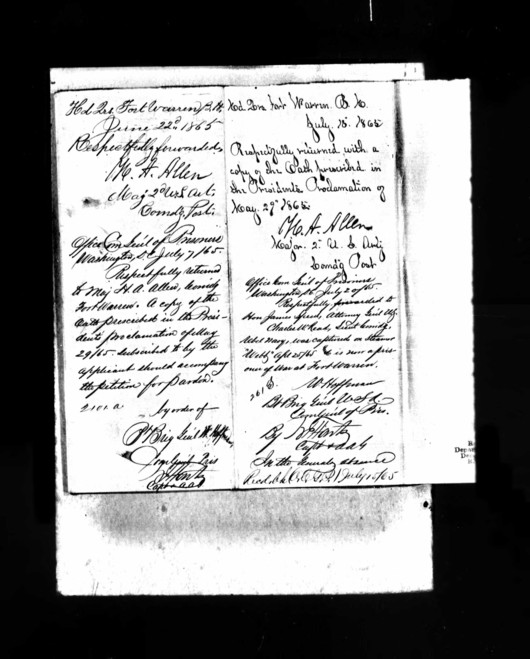 Hd Qrs Fort Warren, B.H.
June 22d 1865
Respectfully forwarded
H. A. Allen
Maj 2d U.S. Art.
Comdg Post.
Office Com Genl of Prisoners
Washington, D.C. July 7/65.
Respectfully returned
to Maj H. A. Allen, Comdg
Fort Warren. A copy of the
Oath prescribed in the Presi-
dents proclamation of May
29/65. subscribed to by the
applicant should accompany
the petition for pardon.
by order of
Bt Brig Genl W. Hoffman
Com Genl Pris
Capt & AAG
Hd Qrs Fort Warren B. H.
July 15. 1865
Respectfully returned with a
copy of the Oath prescribed in
the Presidents Proclamation of
May. 29th 1865.
H. A. Allen
Major. 2d U. S. Arty
Comdg Post
Office Com Genl of Prisoners
Washington, DC July 20/65.
Respectfully forwarded to
Hon James Speed, Attorney Genl U.S.
Charles W Read, Lieut Comdg.
Rebel Navy, was captured on steamer
Webb, Apl 25/65 & is now a pris-
oner of War at Fort Warren.
W. Hoffman
Bt Brig Genl U.S.A.
Com Genl of Pris.
By
Capt & AAG
July 18/65